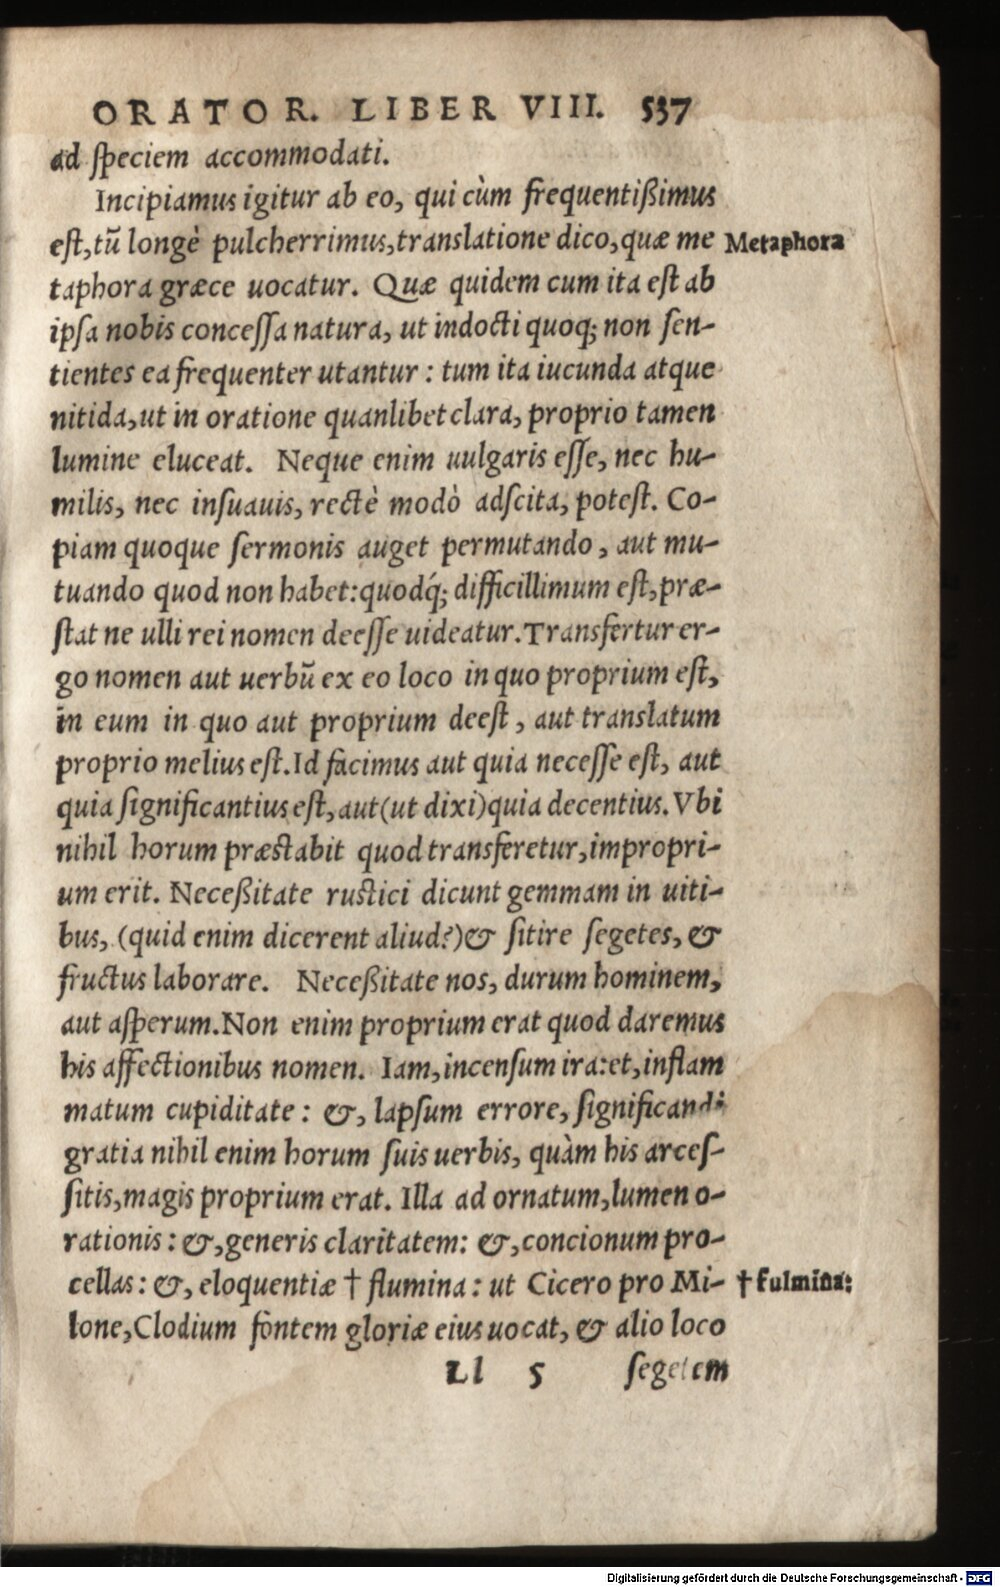 ORATOR. LIBER VIII. 537
ad speciem accommodati.
Incipiamus igitur ab eo, qui cùm frequentißimus
est, tũ longè pulcherrimus, translatione dico, quæ me
Metaphora
taphora græce uocatur. Quæ quidem cum ita est ab
ipsa nobis concessa natura, ut indocti quoq; non sen-
tientes ea frequenter utantur : tum ita iucunda atque
nitida, ut in oratione quanlibet clara, proprio tamen
lumine eluceat. Neque enim uulgaris esse, nec hu-
milis, nec insuauis, rectè modò adscita, potest. Co-
piam quoque sermonis auget permutando, aut mu-
tuando quod non habet: quodq́; difficillimum est, præ-
stat ne ulli rei nomen deesse uideatur. Transfertur er-
go nomen aut uerbũ ex eo loco in quo proprium est,
in eum in quo aut proprium deest, aut translatum
proprio melius est. Id facimus aut quia necesse est, aut
quia significantius est, aut (ut dixi) quia decentius. Vbi
nihil horum præstabit quod transferetur, impropri-
um erit. Neceßitate rustici dicunt gemmam in uiti-
bus, (quid enim dicerent aliud?) & sitire segetes, &
fructus laborare. Neceßitate nos, durum hominem,
aut asperum. Non enim proprium erat quod daremus
his affectionibus nomen. Iam, incensum ira: et, inflam
matum cupiditate : &, lapsum errore, significandi
gratia nihil enim horum suis uerbis, quàm his arces-
sitis, magis proprium erat. Illa ad ornatum, lumen o-
rationis : &, generis claritatem: &, concionum pro-
cellas : &, eloquentiæ † flumina : ut Cicero pro Mi-
† fulmina:
lone, Clodium fontem gloriæ eius uocat, & alio loco
Ll 5 segetem
Digitalisierung gefördert durch die Deutsche Forschungsgemeinschaft - DFG